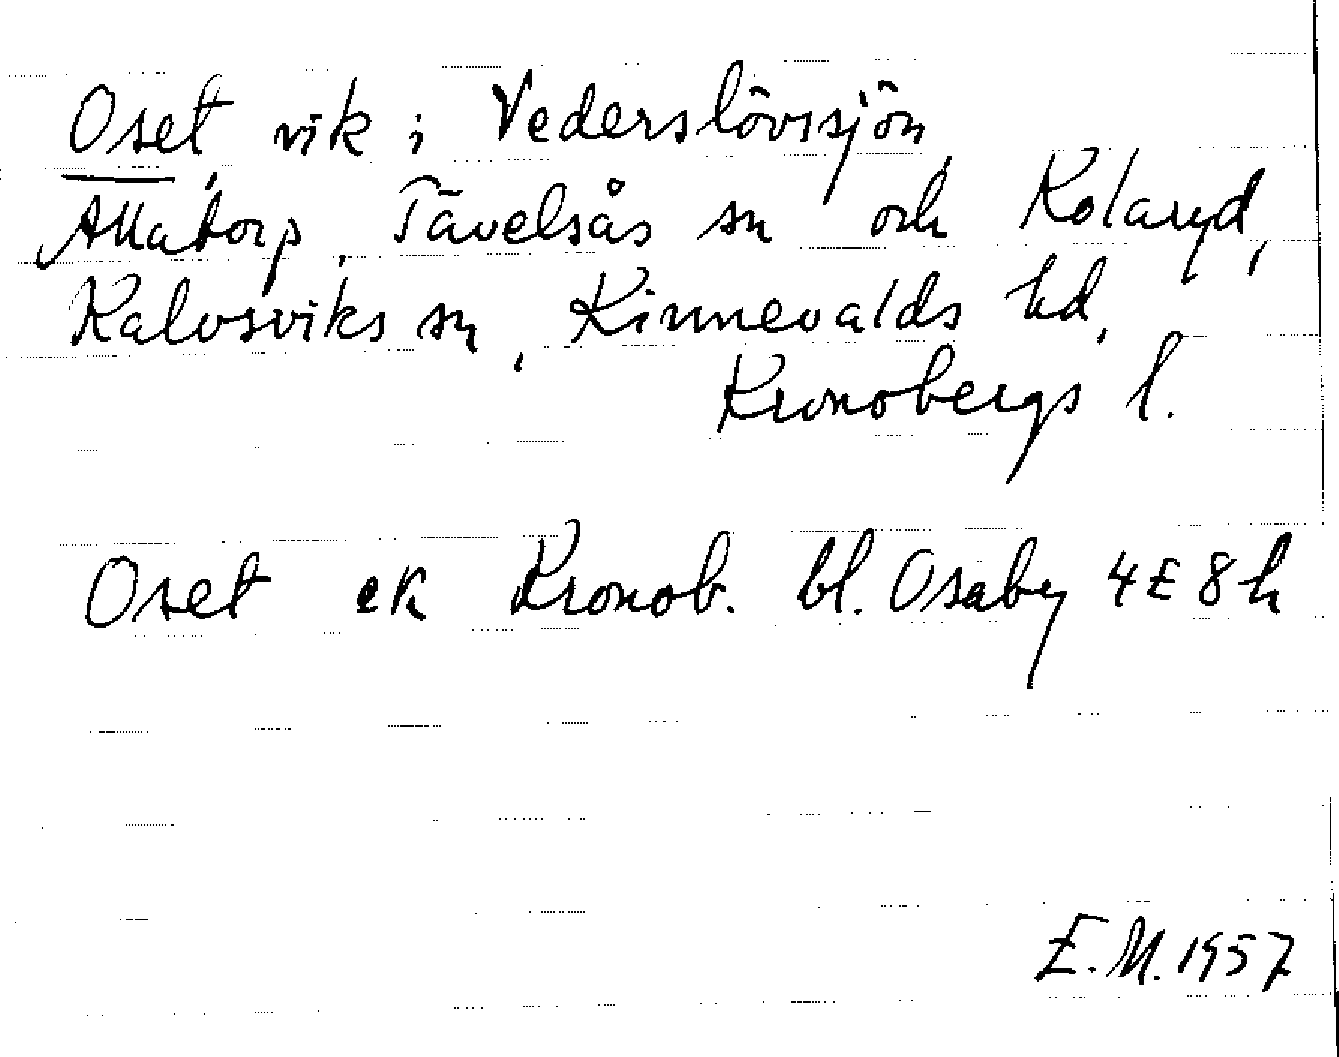 Oset, vik i Vederslövssjön,
Allatorp, Tävelsås sn och Kolaryd,
Kalvsviks sn, Kinnevalds hd,
Kronobergs l.
Oset ek Kronob. bl. Osaby 4E8h
E.M. 1957